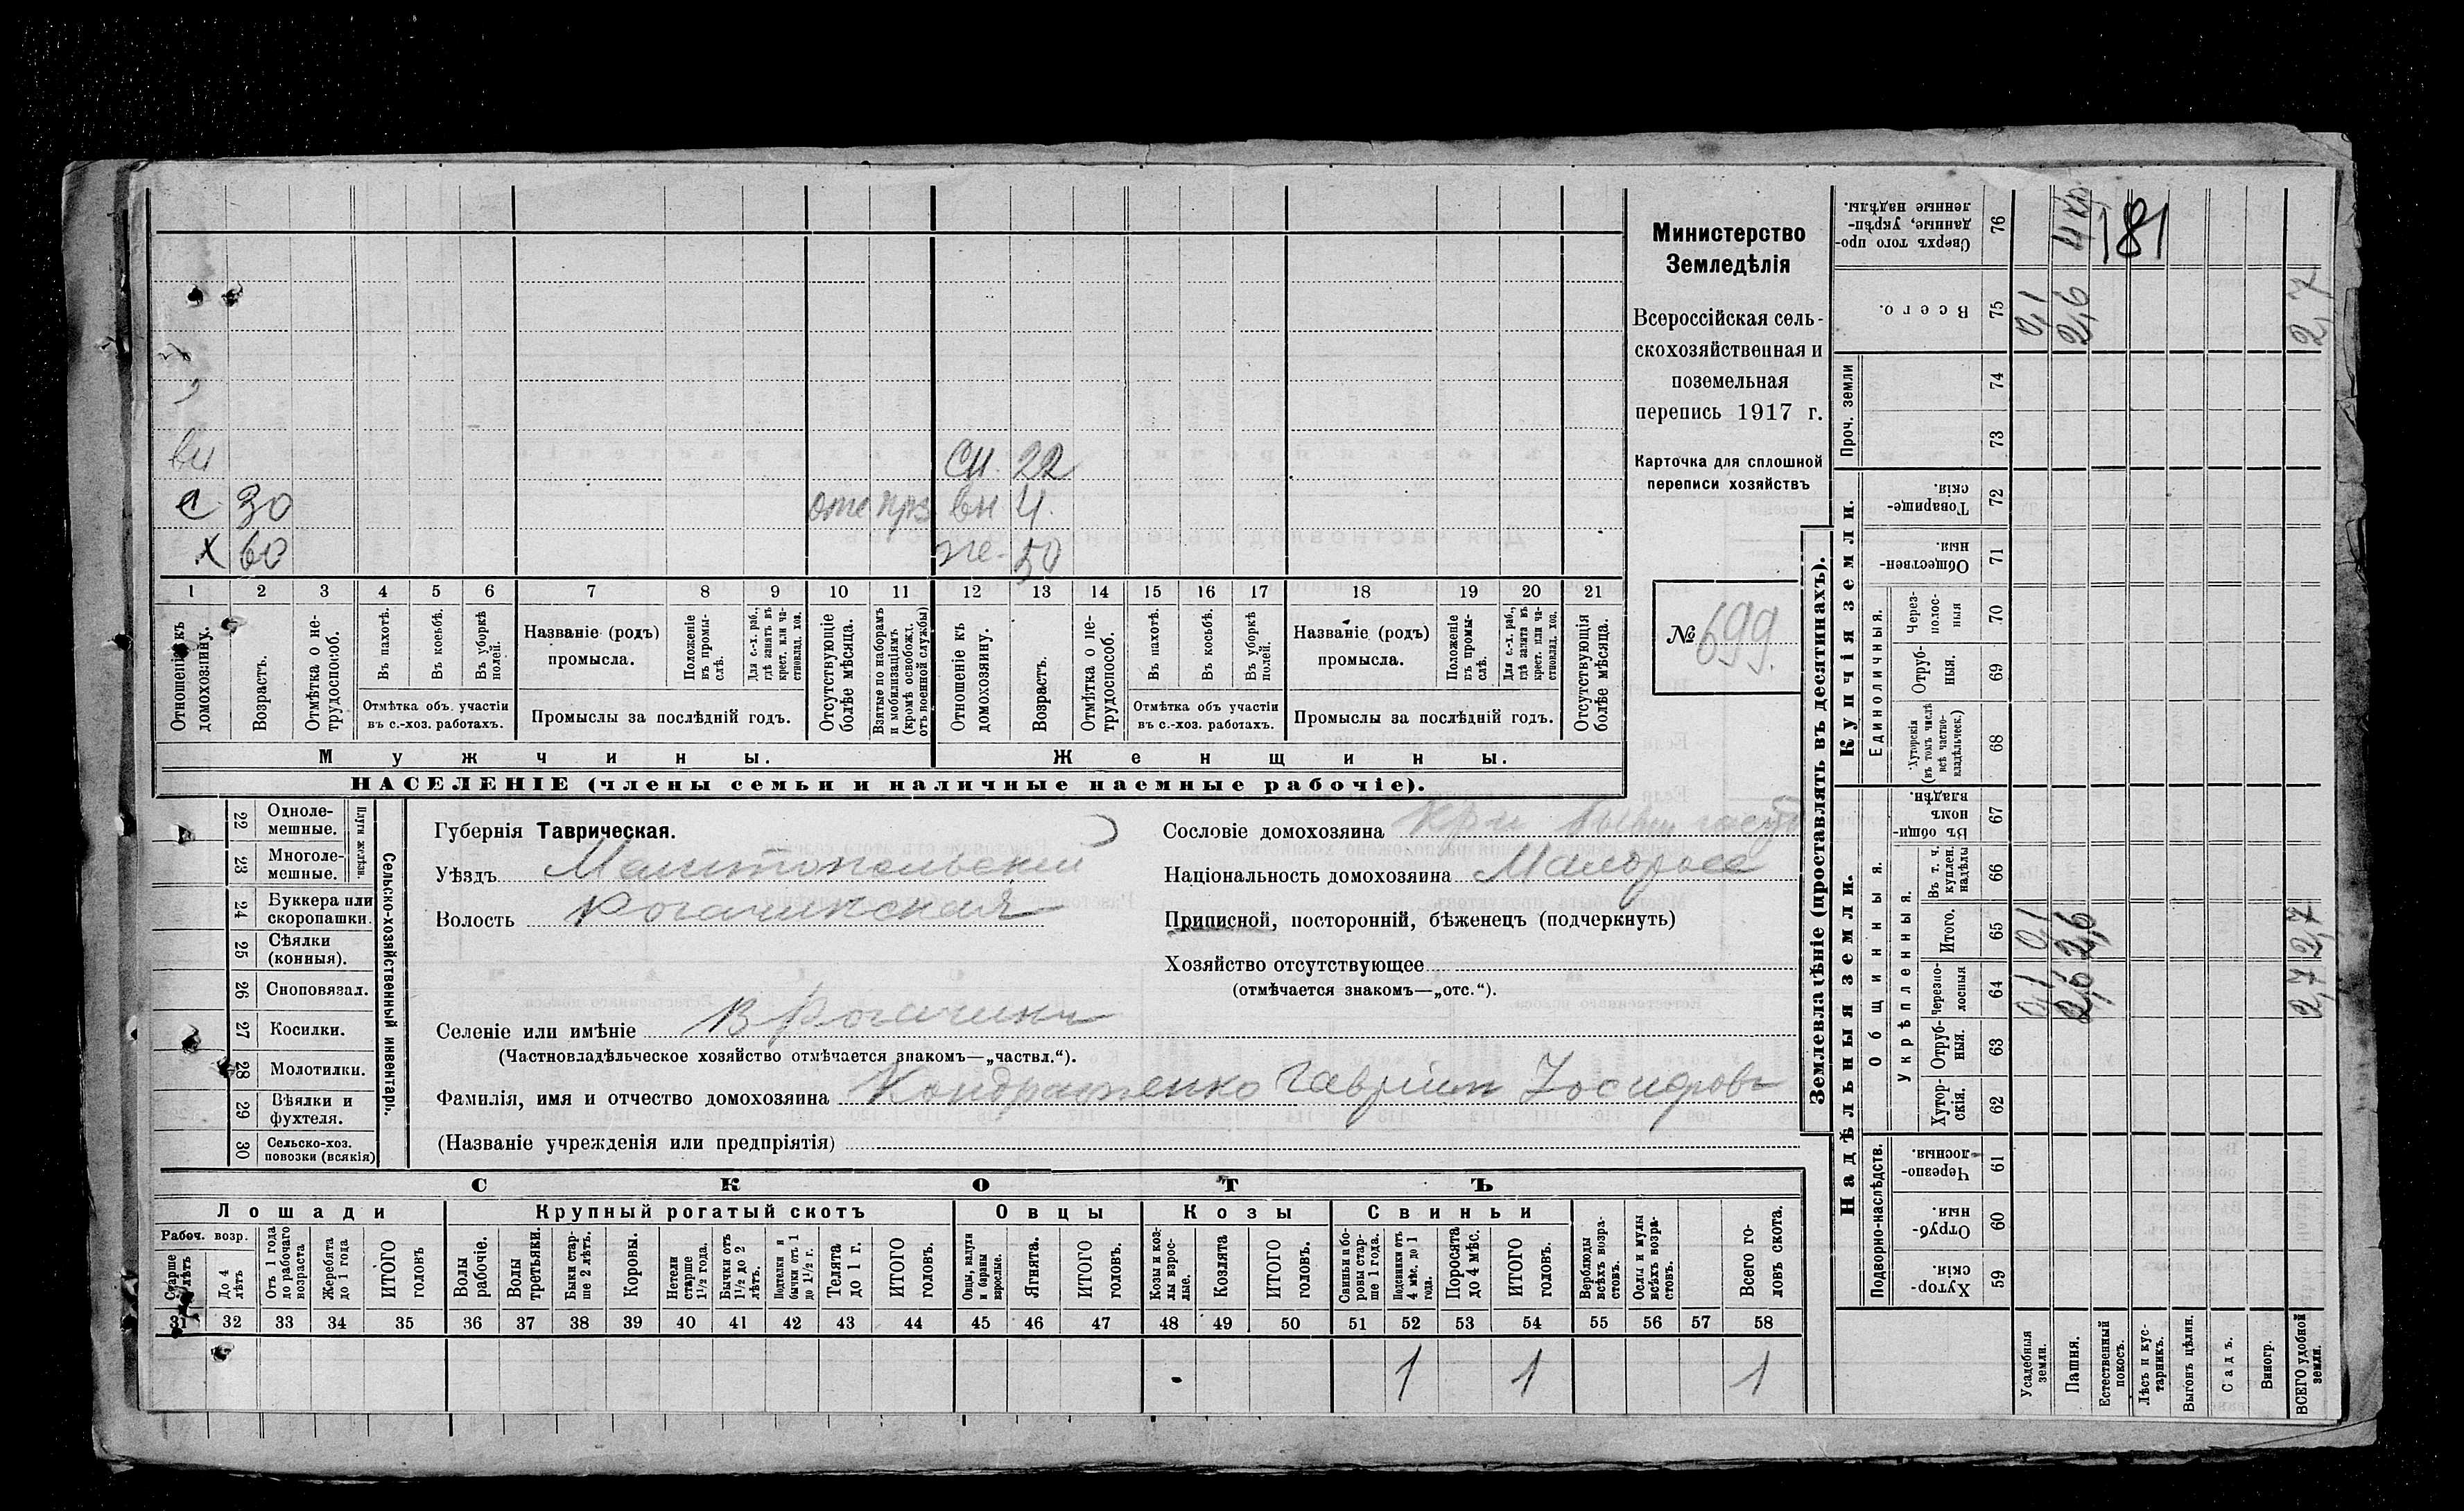 181
Министерство
Земледѣлія
Всероссійская сель-
скохозяйственная и
поземельная
перепись 1917 г.
Карточка для сплошной
переписи хозяйствъ
№ 699.
вн сн. 22
с 30 отс прз вн 4
х 60 же- 50
1 2 3 4 5 6 7 8 9 10 11 12 13 14 15 16 17 18 19 20 21
Отношеніе къ домохозяину.
Возрастъ.
Отмѣтка о не-трудоспособ.
Въ пахотѣ.
Въ косьбѣ.
Въ уборкѣ полей.
Отмѣтка объ участіи
въ с.-хоз. работахъ.
Названіе (родъ)
промысла.
Положеніе въ промы-слѣ.
Для с.-х. раб., гдѣ занятъ въ крест. или ча-стновлад. хоз.
Промыслы за послѣдній годъ.
Отсутствующіе болѣе мѣсяца.
Взятые по наборамъ и мобилизаціямъ (кромѣ освобожд. отъ военной службы)
Отношеніе къ домохозяину.
Возрастъ.
Отмѣтка о не-трудоспособ.
Въ пахотѣ.
Въ косьбѣ.
Въ уборкѣ полей.
Отмѣтка объ участіи
въ с.-хоз. работахъ.
Названіе (родъ)
промысла.
Положеніе въ промы-слѣ.
Для с.-х. раб., гдѣ занята въ крест. или ча-стновлад. хоз.
Промыслы за послѣдній годъ.
Отсутствующія болѣе мѣсяца.
Мужчины. Женщины.
НАСЕЛЕНІЕ (члены семьи и наличные наемные рабочіе).
22 Одноле-мешные.
23 Многоле-мешные.
Плуги желѣзн.
24 Буккера или скоропашки.
25 Сѣялки (конныя).
26 Сноповязал.
27 Косилки.
28 Молотилки.
29 Вѣялки и фухтеля.
30 Сельско-хоз. повозки (всякія)
Сельско-хозяйственный инвентарь.
Губернія Таврическая.
Уѣздъ Мелитопольскій
Волость Рогачикская
Селеніе или имѣніе В Рогачикъ
(Частновладѣльческое хозяйство отмѣчается знакомъ—„частвл.“).
Фамилія, имя и отчество домохозяина Кондратенко Гавріилъ Іосифовъ
(Названіе учрежденія или предпріятія)
Сословіе домохозяина Кр н бывш госуд
Національность домохозяина Малоросс
Приписной, посторонній, бѣженецъ (подчеркнуть)
Хозяйство отсутствующее
(отмѣчается знакомъ—„отс.“).
СКОТЪ
Лошади Крупный рогатый скотъ Овцы Козы Свиньи
Рабоч. возр.
Старше 4 лѣтъ
До 4 лѣтъ
Отъ 1 года до рабочаго возраста
Жеребята до 1 года
ИТОГО головъ
Волы рабочіе.
Волы третьяки.
Быки стар-ше 2 лѣтъ.
Коровы.
Нетели старше 1½ года.
Бычки отъ 1½ до 2 лѣтъ.
Подтелки и бычки отъ 1 до 1½ г.
Телята до 1 г.
ИТОГО головъ.
Овцы, валухи и бараны взрослые.
Ягнята.
ИТОГО головъ.
Козы и коз-лы взрос-лые.
Козлята
ИТОГО головъ.
Свиньи и бо-ровы стар-ше 1 года.
Подсвинки отъ 4 мѣс. до 1 года.
Поросята до 4 мѣс.
ИТОГО головъ.
Верблюды всѣхъ возра-стовъ.
Ослы и мулы всѣхъ возра-стовъ.
Всего го-ловъ скота.
31 32 33 34 35 36 37 38 39 40 41 42 43 44 45 46 47 48 49 50 51 52 53 54 55 56 57 58
1 1 1
Землевладѣніе (проставлять въ десятинахъ).
Надѣльныя земли. Купчія земли. Проч. земли
Подворно-наслѣдств.
Общинныя.
Укрѣпленныя.
Единоличныя.
Хутор-скія. 59
Отруб-ныя. 60
Черезпо-лосныя. 61
Хутор-скія. 62
Отруб-ныя. 63
Черезпо-лосныя 64 0,1 2,6 2,7
Итого. 65 0,1 2,6 2,7
Въ т. ч. куплен. надѣлы 66
Въ общин-номъ владѣн. 67
Хуторскія (въ томъ числѣ всѣ частно-владѣльческ.) 68
Отруб-ныя. 69
Через-полос-ныя 70
Обществен-ныя. 71
Товарище-скія. 72
73
74
Всего. 75 0,1 2,6 2,7
Сверхъ того про-данные, укрѣп-ленные надѣлы. 76
Усадебныя земли.
Пашня.
Естественный покосъ.
Лѣсъ и кус-тарникъ.
Выгонъ цѣлин.
Садъ.
Виногр.
ВСЕГО удобной земли.